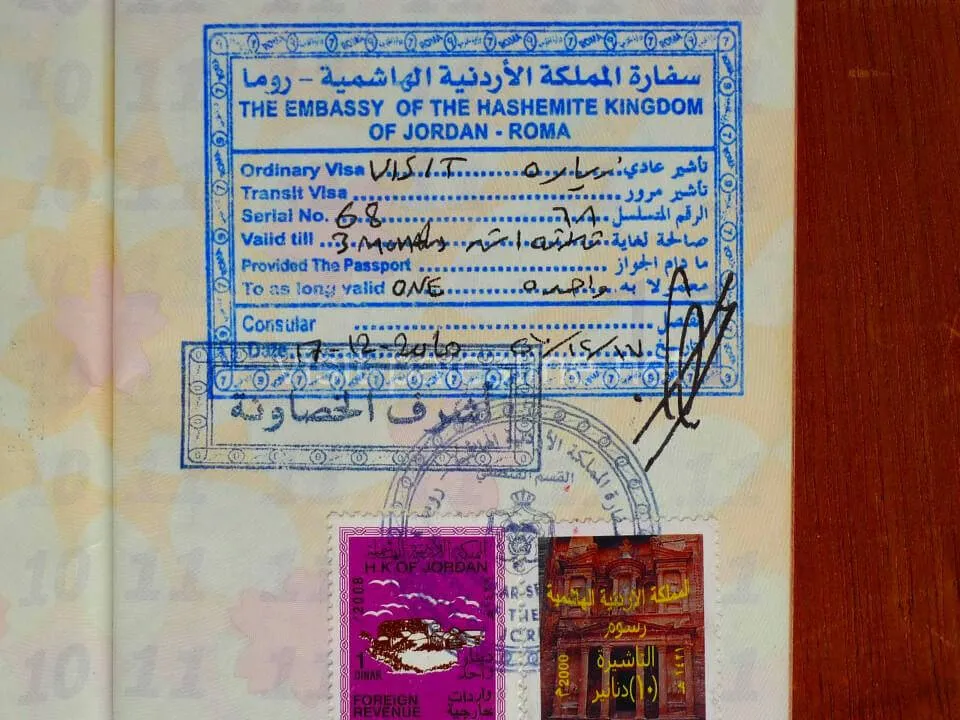 سفارة المملكة الأردنية الهاشمية - روما
THE EMBASSY OF THE HASHEMITE KINGDOM
OF JORDAN - ROMA
Ordinary Visa VISIT زياره تأشير عادي
Transit Visa تأشير مرور
Serial No. 68 ٦٨ الرقم المتسلسل
Valid till 3 Months ثلاثة اشهر صالحة لغاية
Provided The Passport ما دام الجواز
To as long valid ONE واحده
Consular
Date 17-12-2010
أشرف الخصاونة
سفارة المملكة الأردنية الهاشمية - روما
القسم القنصلي
المملكة الأردنية الهاشمية
H.K OF JORDAN
2008
1 DINAR
دينار واحد
FOREIGN REVENUE
واردات خارجية
المملكة الأردنية الهاشمية
رسوم
التأشيرة
(١٠) دنانير
2000م
١٤٢١هـ
THE